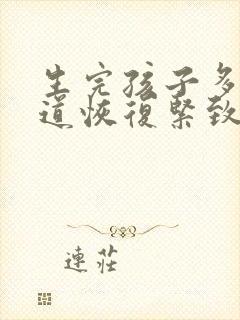 生完孩子多
道恢復緊致
連莊